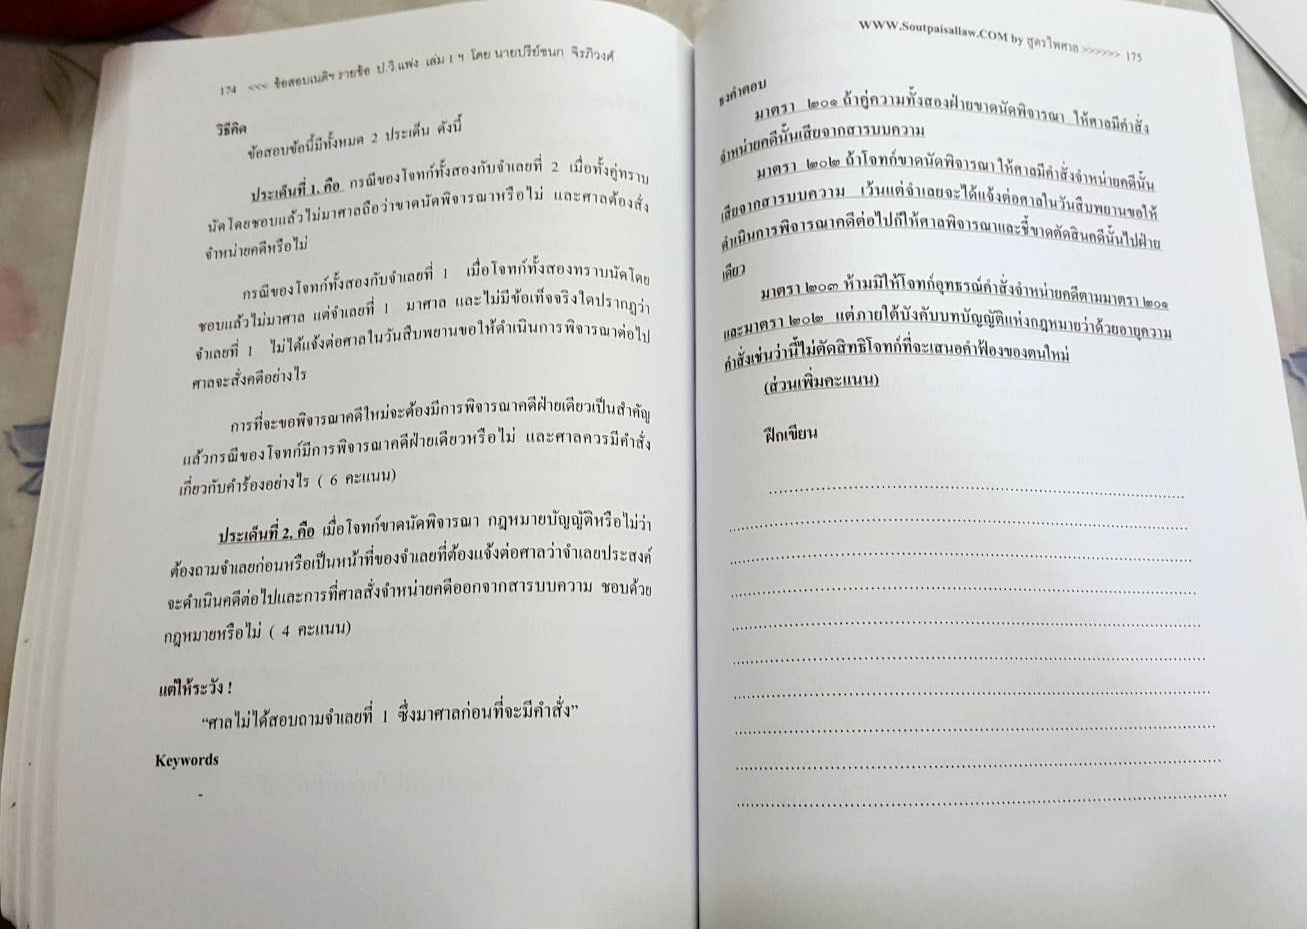 174 <<< ข้อสอบเนติฯ รายข้อ ป.วิ.แพ่ง เล่ม 1 ฯ โดย นายปรีย์ชนก จิรภิวงศ์
วิธีคิด
ข้อสอบข้อนี้มีทั้งหมด 2 ประเด็น ดังนี้
ประเด็นที่ 1. คือ กรณีของโจทก์ทั้งสองกับจำเลยที่ 2 เมื่อทั้งคู่ทราบ
นัดโดยชอบแล้วไม่มาศาลถือว่าขาดนัดพิจารณาหรือไม่ และศาลต้องสั่ง
จำหน่ายคดีหรือไม่
กรณีของโจทก์ทั้งสองกับจำเลยที่ 1 เมื่อโจทก์ทั้งสองทราบนัดโดย
ชอบแล้วไม่มาศาล แต่จำเลยที่ 1 มาศาล และไม่มีข้อเท็จจริงใดปรากฏว่า
จำเลยที่ 1 ไม่ได้แจ้งต่อศาลในวันสืบพยานขอให้ดำเนินการพิจารณาต่อไป
ศาลจะสั่งคดีอย่างไร
การที่จะขอพิจารณาคดีใหม่จะต้องมีการพิจารณาคดีฝ่ายเดียวเป็นสำคัญ
แล้วกรณีของโจทก์มีการพิจารณาคดีฝ่ายเดียวหรือไม่ และศาลควรมีคำสั่ง
เกี่ยวกับคำร้องอย่างไร ( 6 คะแนน)
ประเด็นที่ 2. คือ เมื่อโจทก์ขาดนัดพิจารณา กฎหมายบัญญัติหรือไม่ว่า
ต้องถามจำเลยก่อนหรือเป็นหน้าที่ของจำเลยที่ต้องแจ้งต่อศาลว่าจำเลยประสงค์
จะดำเนินคดีต่อไปและการที่ศาลสั่งจำหน่ายคดีออกจากสารบบความ ชอบด้วย
กฎหมายหรือไม่ ( 4 คะแนน)
แต่ให้ระวัง !
“ศาลไม่ได้สอบถามจำเลยที่ 1 ซึ่งมาศาลก่อนที่จะมีคำสั่ง”
Keywords
-
WWW.Soutpaisallaw.COM by สูตรไพศาล >>>>>> 175
ธงคำตอบ
มาตรา ๒๐๑ ถ้าคู่ความทั้งสองฝ่ายขาดนัดพิจารณา ให้ศาลมีคำสั่ง
จำหน่ายคดีนั้นเสียจากสารบบความ
มาตรา ๒๐๒ ถ้าโจทก์ขาดนัดพิจารณา ให้ศาลมีคำสั่งจำหน่ายคดีนั้น
เสียจากสารบบความ เว้นแต่จำเลยจะได้แจ้งต่อศาลในวันสืบพยานขอให้
ดำเนินการพิจารณาคดีต่อไปก็ให้ศาลพิจารณาและชี้ขาดตัดสินคดีนั้นไปฝ่าย
เดียว
มาตรา ๒๐๓ ห้ามมิให้โจทก์อุทธรณ์คำสั่งจำหน่ายคดีตามมาตรา ๒๐๑
และมาตรา ๒๐๒ แต่ภายใต้บังคับบทบัญญัติแห่งกฎหมายว่าด้วยอายุความ
คำสั่งเช่นว่านี้ไม่ตัดสิทธิโจทก์ที่จะเสนอคำฟ้องของตนใหม่
(ส่วนเพิ่มคะแนน)
ฝึกเขียน